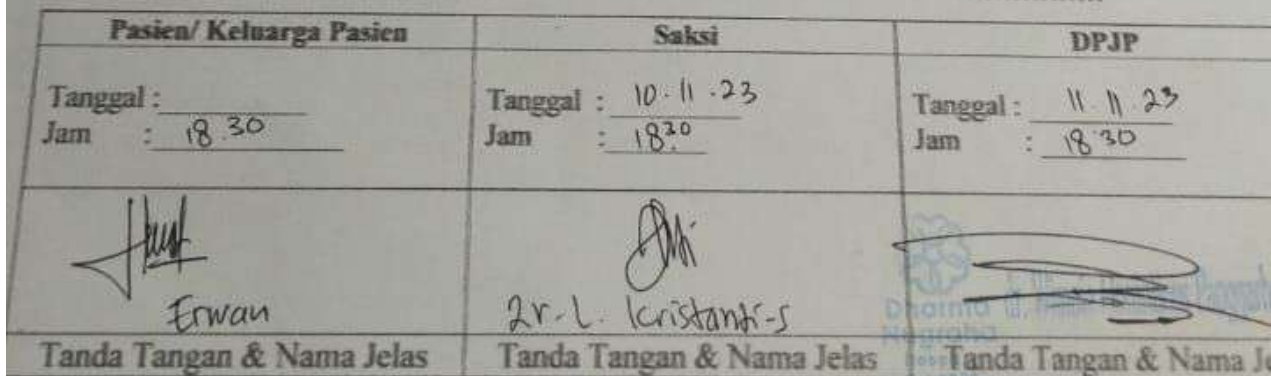 Pasien/ Keluarga Pasien Saksi DPJP
Tanggal : Tanggal : 10.11.23 Tanggal : 11.11.23
Jam : 18.30 Jam : 18.30 Jam : 18.30
Erwan Kristanti-S
Dharma
Nugraha
Tanda Tangan & Nama Jelas Tanda Tangan & Nama Jelas Tanda Tangan & Nama Je